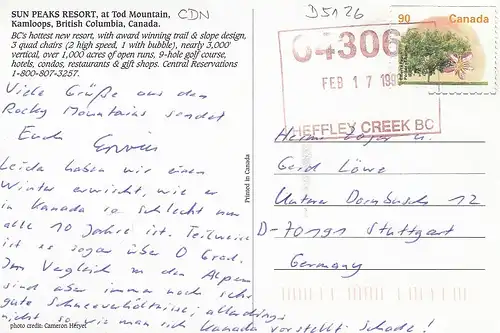 SUN PEAKS RESORT, at Tod Mountain,
Kamloops, British Columbia, Canada.
BC's hottest new resort, with award winning trail & slope design,
3 quad chairs (2 high speed, 1 with bubble), nearly 3,000'
vertical, over 1,000 acres of open runs, 9-hole golf course,
hotels, condos, restaurants & gift shops. Central Reservations
1-800-807-3257.
CDN
D5126
90 Canada
04306
FEB 17 199
HEFFLEY CREEK BC
Viele Grüße aus den
Rocky Mountains sendet
Euch Erwin
Leider haben wir einen
Winter erwischt, wie er
in Kanada so schlecht nur
alle 10 Jahre ist. Teilweise
ist es sogar über 0 Grad.
Im Vergleich zu den Alpen
sind aber immer noch sehr
gute Schneeverhältnisse, allerdings
nicht so wie man sich Kanada vorstellt. Schade!
Printed in Canada
u.
Gerd Löwe
Untere Dornbusch 12
D-70191 Stuttgart
Germany
photo credit: Cameron Heryet